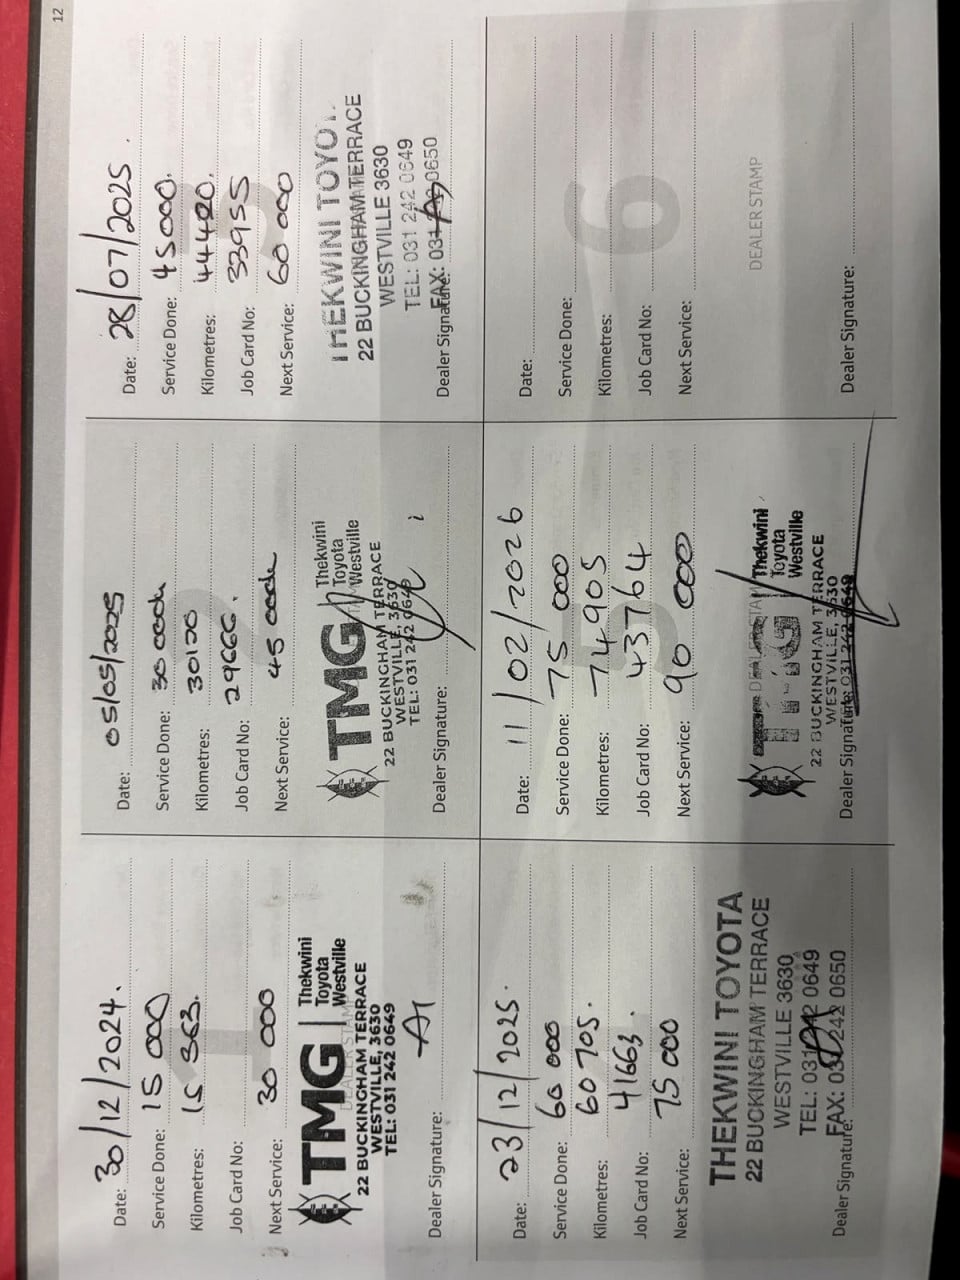 12
Date: 30/12/2024.
Service Done: 15 000
Kilometres: 15 363.
Job Card No:
Next Service: 30 000
TMG Thekwini
Toyota
Westville
22 BUCKINGHAM TERRACE
WESTVILLE, 3630
TEL: 031 242 0649
Dealer Signature:
Date: 05/05/2025
Service Done: 30 000
Kilometres: 30120
Job Card No: 29666.
Next Service: 45 000
TMG Thekwini
Toyota
Westville
22 BUCKINGHAM TERRACE
WESTVILLE, 3630
TEL: 031 242 0649
Dealer Signature:
Date: 28/07/2025.
Service Done: 45000.
Kilometres: 44420.
Job Card No: 33955
Next Service: 60 000
THEKWINI TOYOT
22 BUCKINGHAM TERRACE
WESTVILLE 3630
TEL: 031 242 0649
FAX: 031 0650
Dealer Signature:
Date: 23/12/2025.
Service Done: 60 000
Kilometres: 60 705.
Job Card No: 41663.
Next Service: 75 000
THEKWINI TOYOTA
22 BUCKINGHAM TERRACE
WESTVILLE 3630
TEL: 031 242 0649
FAX: 031 242 0650
Dealer Signature:
Date: 11/02/2026
Service Done: 75 000
Kilometres: 74905
Job Card No: 43764
Next Service: 90 000
TMG Thekwini
Toyota
Westville
22 BUCKINGHAM TERRACE
WESTVILLE, 3630
031 242 0649
Dealer Signature:
6
Date:
Service Done:
Kilometres:
Job Card No:
Next Service:
DEALER STAMP
Dealer Signature: